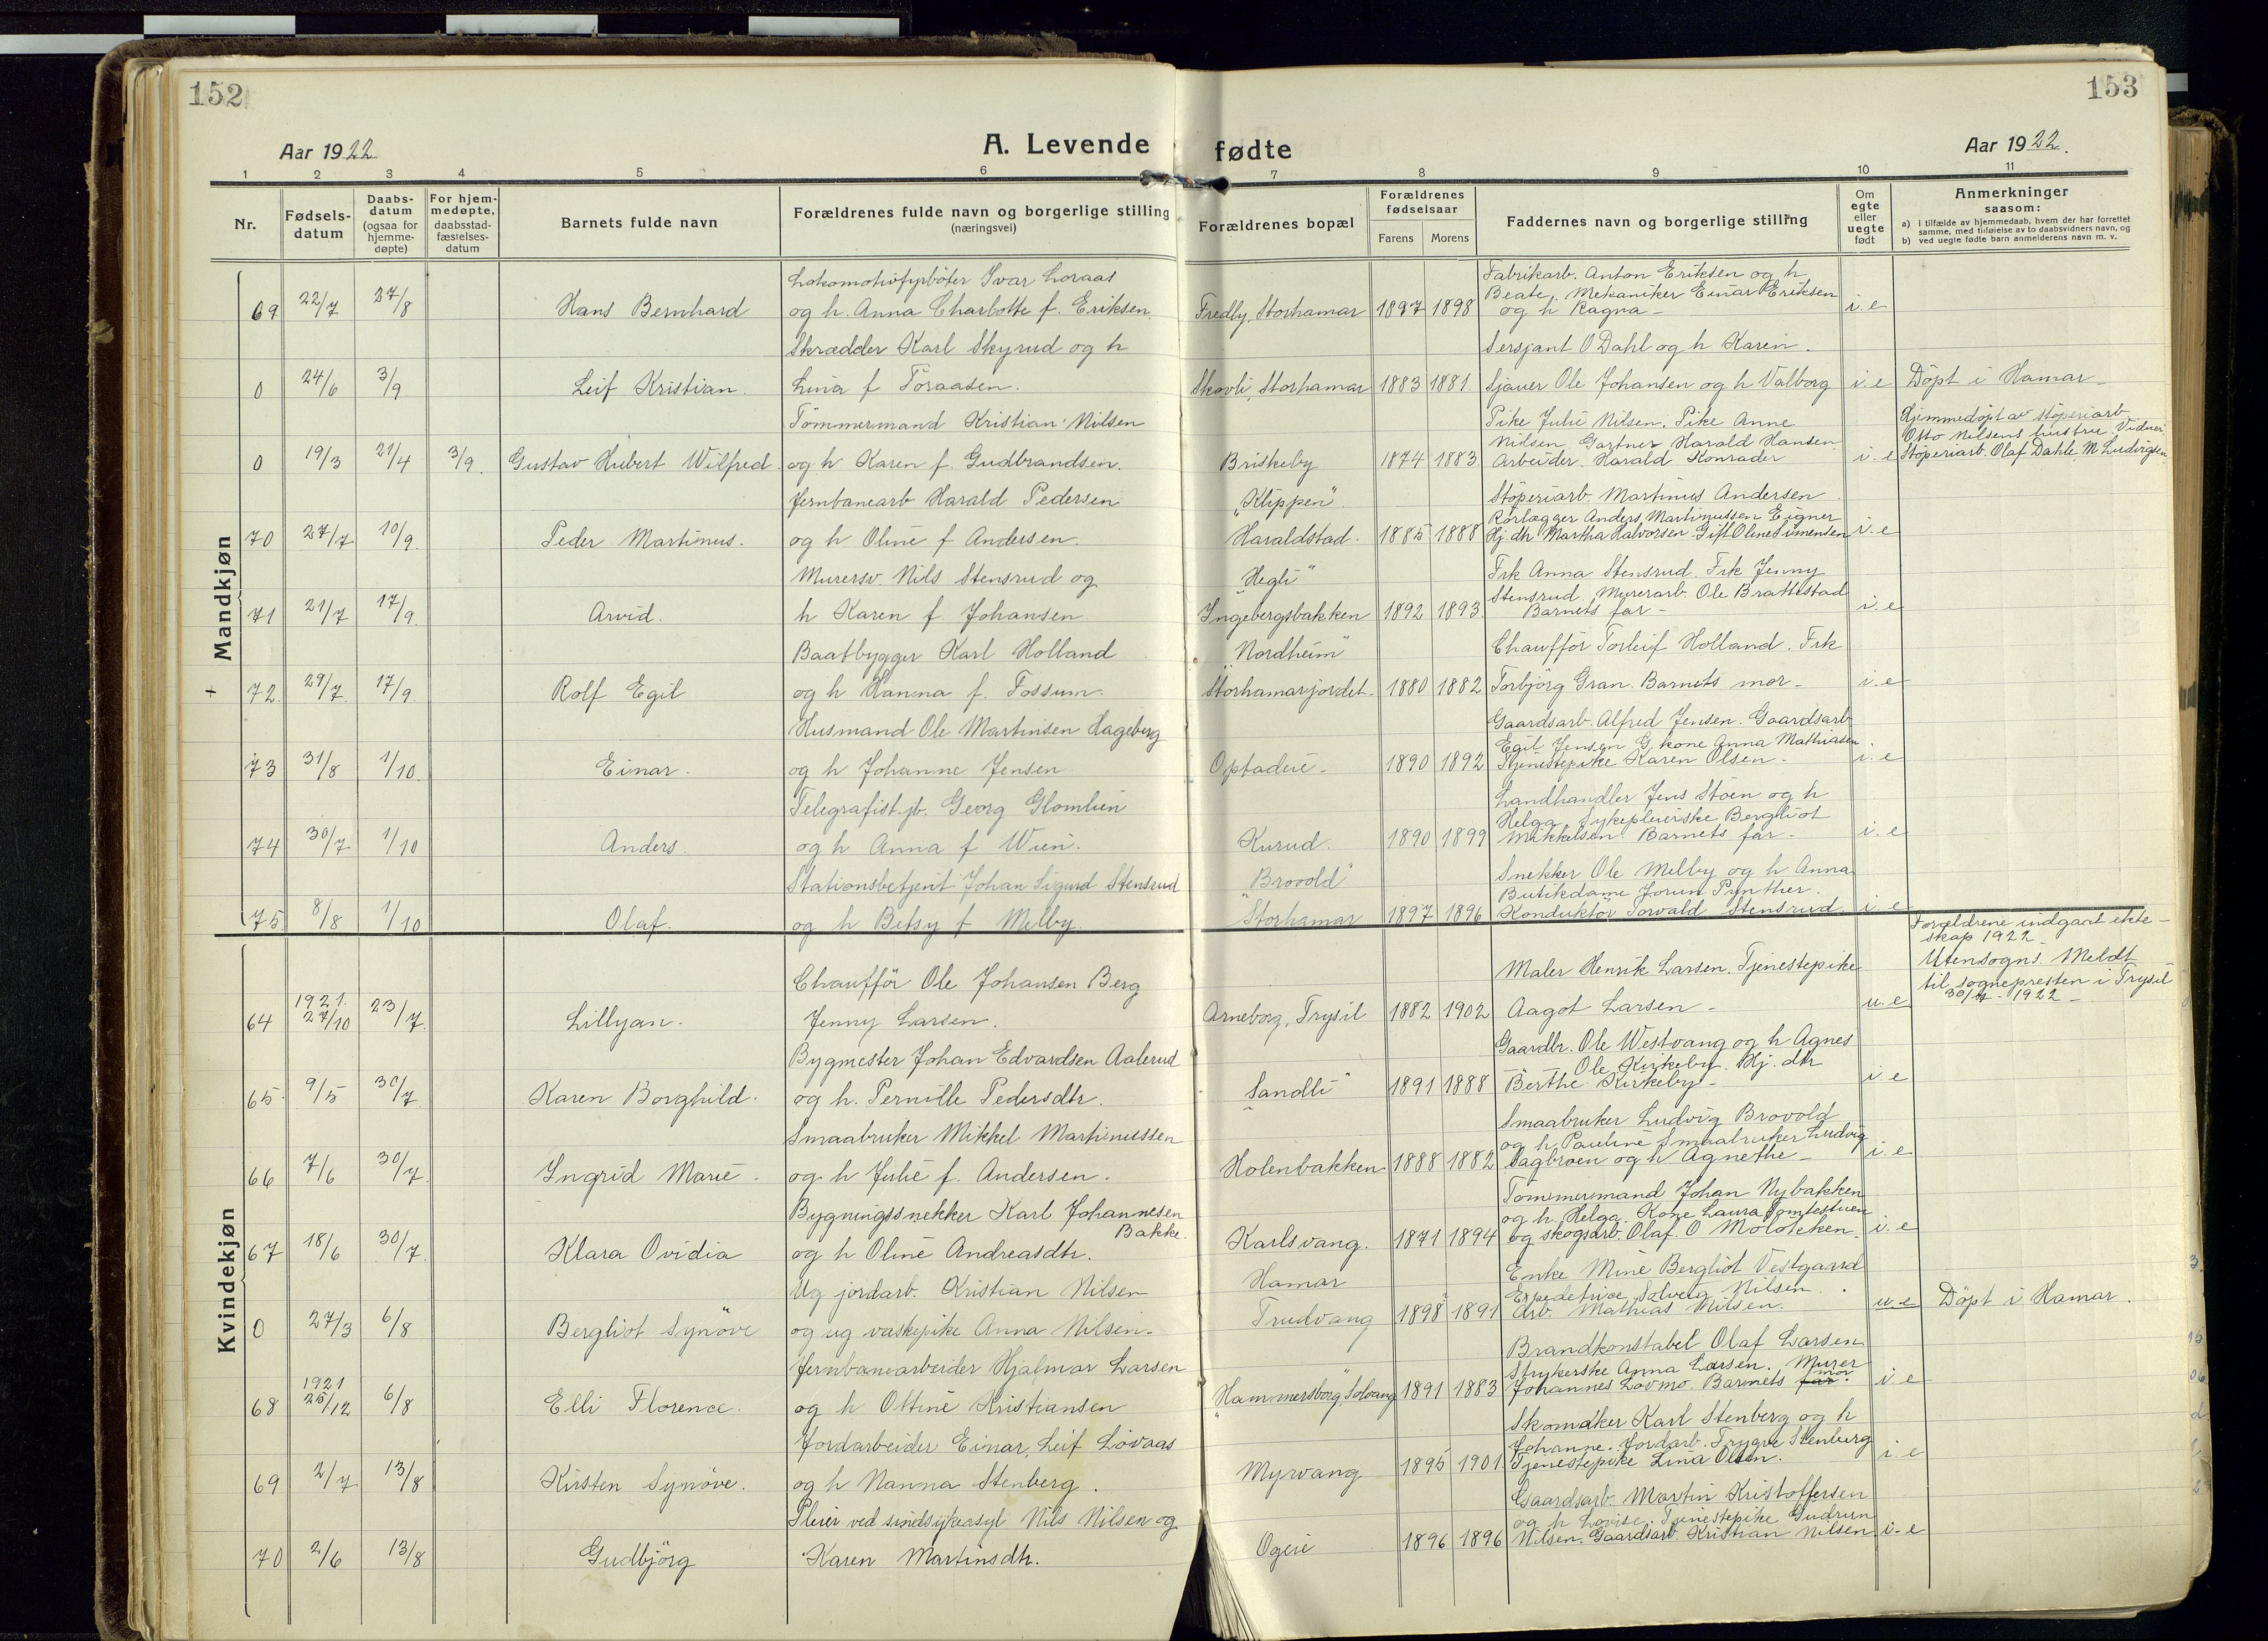 152
153
Aar 1922
A. Levende fødte
Aar 1922.
1 2 3 4 5 6 7 8 9 10 11
Nr.
Fødsels-
datum
Daabs-
datum
(ogsaa for
hjemme-
døpte)
For hjem-
medøpte,
daabsstad-
fæstelses-
datum
Barnets fulde navn
Forældrenes fulde navn og borgerlige stilling
(næringsvei)
Forældrenes bopæl
Forældrenes
fødselsaar
Farens Morens
Faddernes navn og borgerlige stilling
Om
egte
eller
uegte
født
Anmerkninger
saasom:
a) i tilfælde av hjemmedaab, hvem der har forrettet
samme, med tilføielse av to daabsvidners navn, og
b) ved uegte fødte barn anmelderens navn m. v.
Mandkjøn
69 22/7 27/8 Hans Bernhard
Lokomotivfyrböter Ivar Loraas
og h. Anna Charlotte f. Eriksen.
Fredly, Storhamar 1897 1898
Fabrikarb. Anton Eriksen og h
Beate, Mekaniker Einar Eriksen
og h Ragna -
i. e
0 24/6 3/9 Leif Kristian.
Skrædder Karl Skyrud og h
Lina f Toraasen.
Skovli, Storhamar 1883 1881
Sersjant O Dahl og h Karen.
Sjauer Ole Johansen og h Valborg
i. e
Döpt i Hamar -
0 19/3 21/4 3/9. Gustav Hubert Wilfred
Tömmermand Kristian Nilsen
og h Karen f. Gudbrandsen.
Briskeby 1874 1883
Pike Julie Nilsen, Pike Anne
Nilsen, Gartner Harald Hansen
Arbeider Harald Konrader
i. e
Hjemmedöpt av Stöperiarb
Otto Nilsens hustru. Vidner
Stöperiarb. Olaf Dahle, M Ludvigsen
70 27/7 10/9. Peder Martinus.
Jernbanearb Harald Pedersen
og h Oline f Andersen.
"Klippen"
Haraldstad. 1885 1888
Stöperiarb. Martinus Andersen
Rörlægger Anders Martinussen Eigner
Hj. dtr Martha Halvorsen Gift Oline Simensen
i. e
71 21/7 17/9. Arvid.
Murersv. Nils Stensrud og
h Karen f. Johansen
"Hegli"
Ingebergsbakken 1892 1893
Frk Anna Stensrud Frk Jenny
Stensrud. Murerarb. Ole Brattestad
Barnets far -
i. e
+ 72. 29/7. 17/9. Rolf Egil
Baatbygger Karl Holland
og h Hanna f. Fossum.
"Nordheim"
Storhamarjordet. 1880 1882
Chaufför Torleif Holland. Frk
Torbjörg Gran. Barnets mor -
i. e
73 31/8 1/10. Einar.
Husmand Ole Martinsen Hageberg
og h Johanne Jensen
Optadeie - 1890 1892
Gaardsarb. Alfred Jensen. Gaardsarb
Egil Jensen G. kone Anna Mathiasen
Tjenestepike Karen Olsen -
i. e
74 30/7. 1/10 Anders.
Telegrafist jb. Georg Glomlien
og h Anna f Wien.
Kurud. 1890 1899
Landhandler Jens Stöen og h
Helga. Sykepleierske Bergliot
Mikkelsen. Barnets far -
i. e
75 8/8 1/10 Olaf.
Stationsbetjent Johan Sigurd Stensrud
og h Betsy f Melby.
"Brovold"
Storhamar 1897 1896
Snekker Ole Melby og h Anna
Butikdame Jorun Pynther.
Konduktör Torvald Stensrud
i. e
Kvindekjøn
64 1921. 27/10 23/7. Lillyan.
Chaufför Ole Johansen Berg
Jenny Larsen.
Arneborg, Trysil 1882 1902
Maler Henrik Larsen. Tjenestepike
Aagot Larsen -
u. e
Forældrene indgaat ekte-
skap 1922 -
Utensogns. Meldt
til sognepresten i Trysil
1922 -
65. 9/5 30/7 Karen Borghild.
Bygmester Johan Edvardsen Aalerud
og h. Pernille Pedersdtr.
"Sandli" 1891 1888
Gaardbr. Ole Westvang og h Agnes
Ole Kirkeby. Hj. dtr
Berthe Kirkeby -
i e
66 7/6 30/7. Ingrid Marie -
Smaabruker Mikkel Martinussen
og h Julie f. Andersen.
Holenbakken 1888 1882
Smaabruker Ludvig Brovold
og h Pauline Smaabruker Ludvig
Dagbroen og h Agnethe -
i. e
67 18/6 30/7. Klara Ovidia
Bygningssnekker Karl Johannesen
Bakke.
og h Oline Andreasdtr.
Karlsvang. 1871 1894
Tömmermand Johan Nybakken
og h. Helga. Kone Laura Tomtestuen
og skogsarb. Olaf. O
i. e
0 27/3 6/8 Bergliot Synöve
Ug jordarb. Kristian Nilsen
og ug vaskepike Anna Nilsen.
Hamar
Trudvang 1898 1891
Enke Mine Bergliot Vestgaard
Expeditrice Solveig Nilsen.
Arb. Mathias Nilsen.
u. e
Döpt i Hamar.
68 1921 25/12 6/8 Elli Florence.
Jernbanearbeider Hjalmar Larsen
og h Ottine Kristiansen
"Hammersborg" Solvang 1891 1883
Brandkonstabel Olaf Larsen
Strykerske Anna Larsen. Murer
Johannes Lovmo. Barnets far mor.
i. e
69 2/7 13/8 Kirsten Synöve.
Jordarbeider Einar Leif Lövaas
og h Nanna Stenberg.
Myrvang 1895 1901
Skomaker Karl Stenberg og h
Johanne. Jordarb. Trygve Stenberg
Tjenestepike Lina Olsen.
i. e
70 2/6 13/8 Gudbjörg
Pleier ved sindsykeasyl Nils Nilsen og
Karen Martinsdtr.
Ogeie 1896 1896
Gaardsarb. Martin Kristoffersen
og h Lovise. Tjenestepike Gudrun
Nilsen. Gaardsarb Kristian Nilsen
i. e